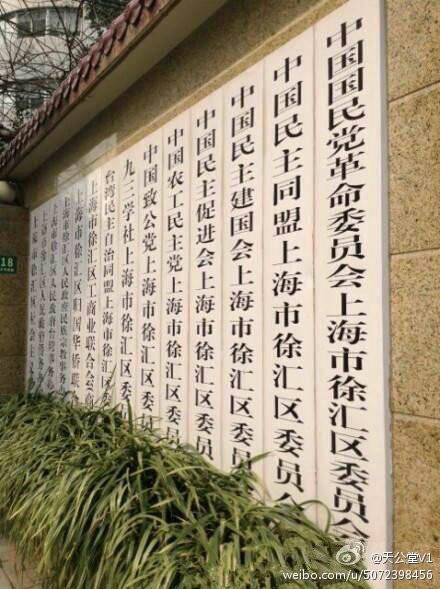 中国国民党革命委员会上海市徐汇区委员会
中国民主同盟上海市徐汇区委员会
中国民主建国会上海市徐汇区委员
中国民主促进会上海市徐汇区委员
中国农工民主党上海市徐汇区委员
中国致公党上海市徐汇区委员
九三学社上海市徐汇区委
台湾民主自治同盟上海市徐汇区
上海市徐汇区工商业联合会
上海市徐汇区归国华侨联
上海市徐汇区人民政府民族宗教事务
上海市徐汇区人民政府台湾事务
上海市徐汇区
18
@天公堂V1
weibo.com/u/5072398456